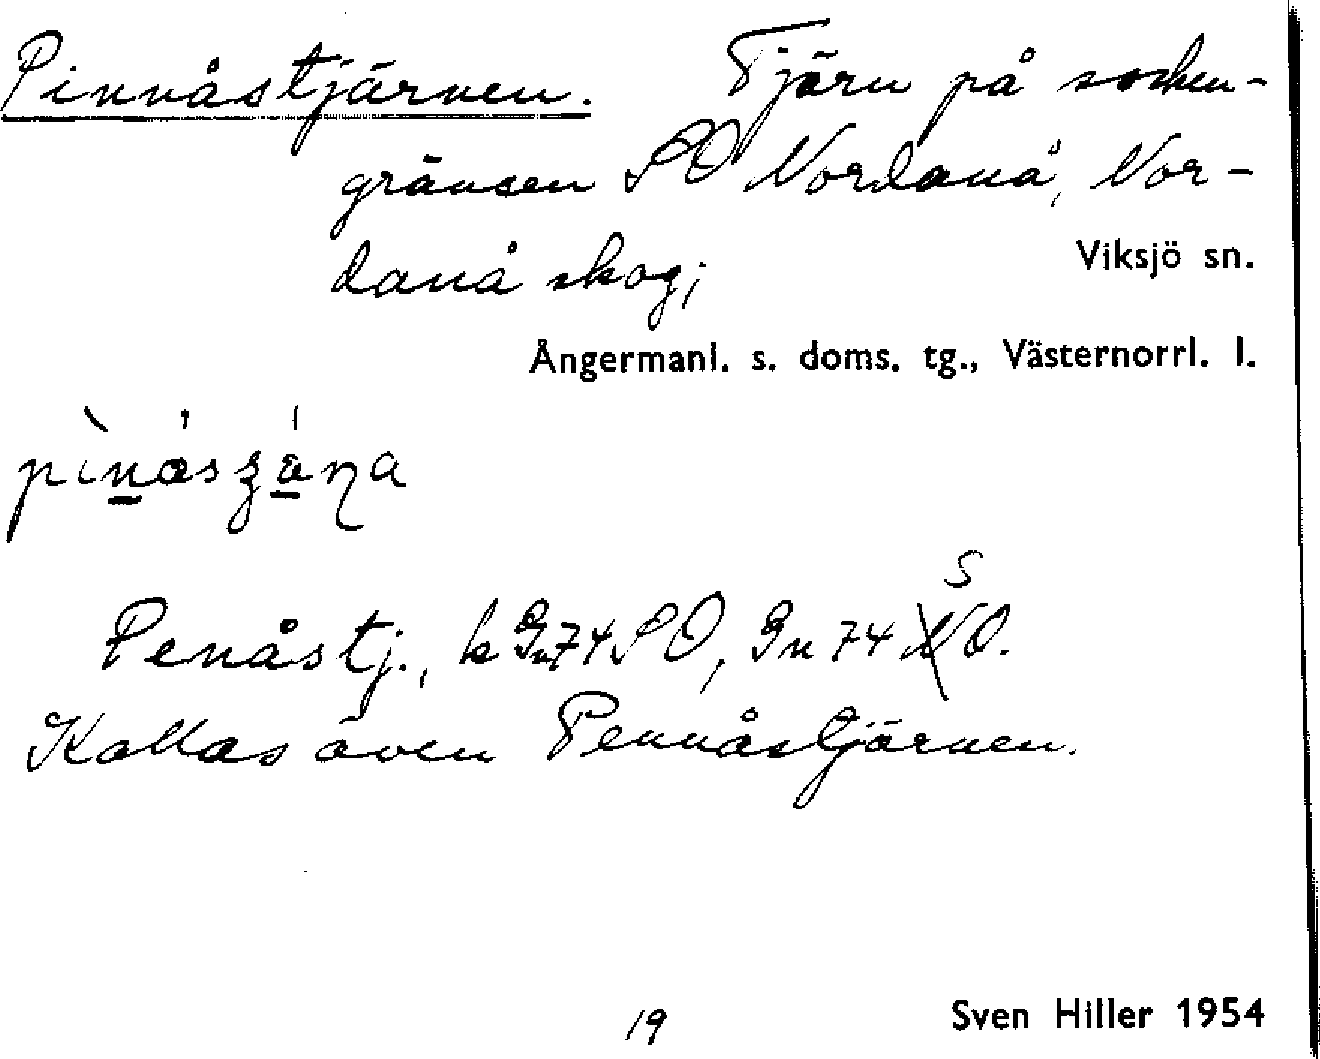 Pinnåstjärnen. Tjärn på socken-
gränsen SO Nordanå, Nor-
danå skog;
Viksjö sn.
Ångermanl. s. doms. tg., Västernorrl. l.
Penåstj., k Gn74SO, Gn 74 SO.
Kallas även Pennåstjärnen.
19
Sven Hiller 1954